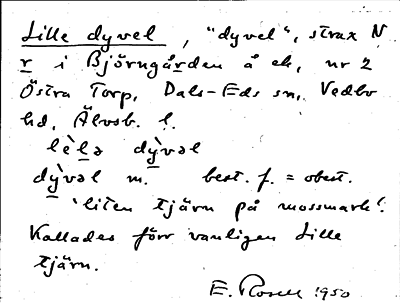 Lille dyvel, "dyvel", strax N
r i Björngården å ek, nr 2
Östra Torp, Dals-Eds sn, Vedbo
hd, Älvsb. l.
lèlə dyvəl
dỳvəl m. best. f. = obest.
'liten tjärn på mossmark'.
Kallades förr vanligen Lille
tjärn.
E. Rosell 1950